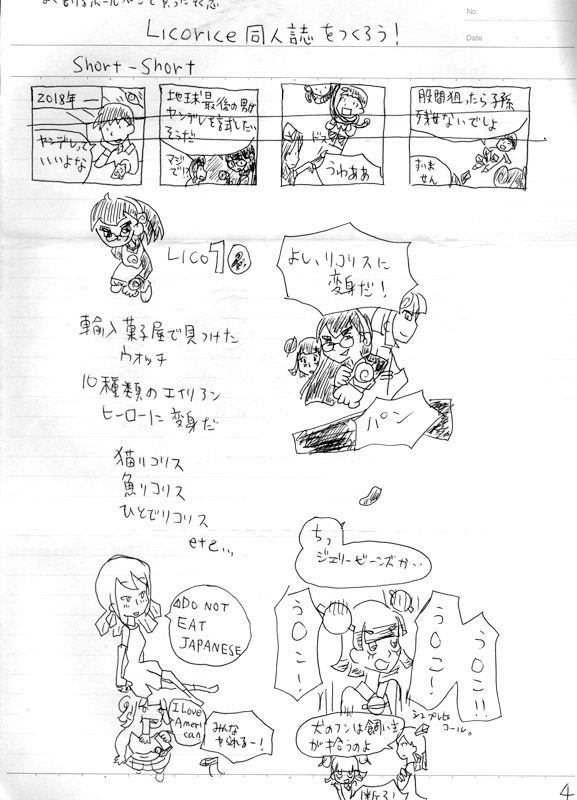 No.
Date
Licorice同人誌をつくろう!
Short-Short
2018年
ヤンデレって
いいよな
地球最後の男が
ヤンデレを試したい
そうだ
マジ
で!?
ドス
うわああ
股間狙ったら子孫
残せないでしょ
すいま
せん
LICO
よし、リコリスに
変身だ!
輸入菓子屋で見つけた
ウォッチ
10種類のエイリアン
ヒーローに変身だ
パン
猫リコリス
魚リコリス
ひとでリコリス
etc...
ちっ
ジェリービーンズか…
DO NOT
EAT
JAPANESE
う○こー!
う○こ!!
う○こー!
I Love
Ameri
can
みんな
やられるー!
犬のフンは飼い主
が拾うのよ
コール。
断る!
4